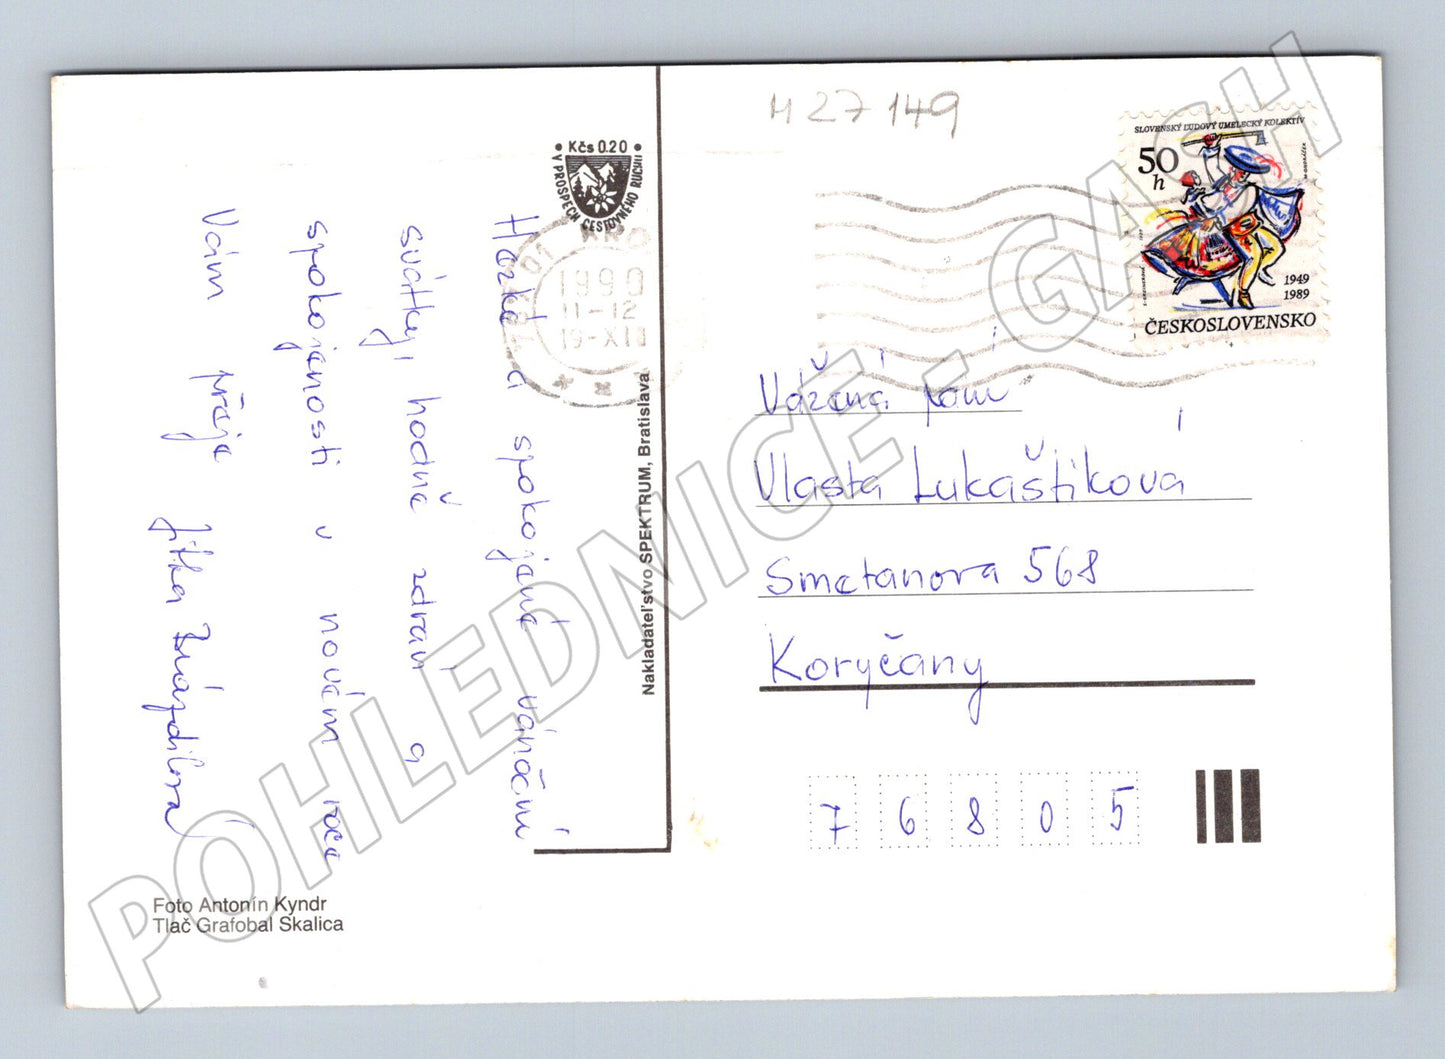 M 27 149
Kčs 0.20
V PROSPECH CESTOVNÉHO RUCHU
1990
11-12
19-XII
SLOVENSKÝ ĽUDOVÝ UMELECKÝ KOLEKTÍV
50
h
1949
1989
ČESKOSLOVENSKO
Hezké a spokojené vánoční
svátky, hodně zdraví a
spokojenosti v novém roce
Vám přeje
Jitka
Nakladateľstvo SPEKTRUM, Bratislava
Vážená paní
Vlasta Lukaštíková
Smetanova 568
Koryčany
7 6 8 0 5
Foto Antonín Kyndr
Tlač Grafobal Skalica
POHLEDNICE - GASH